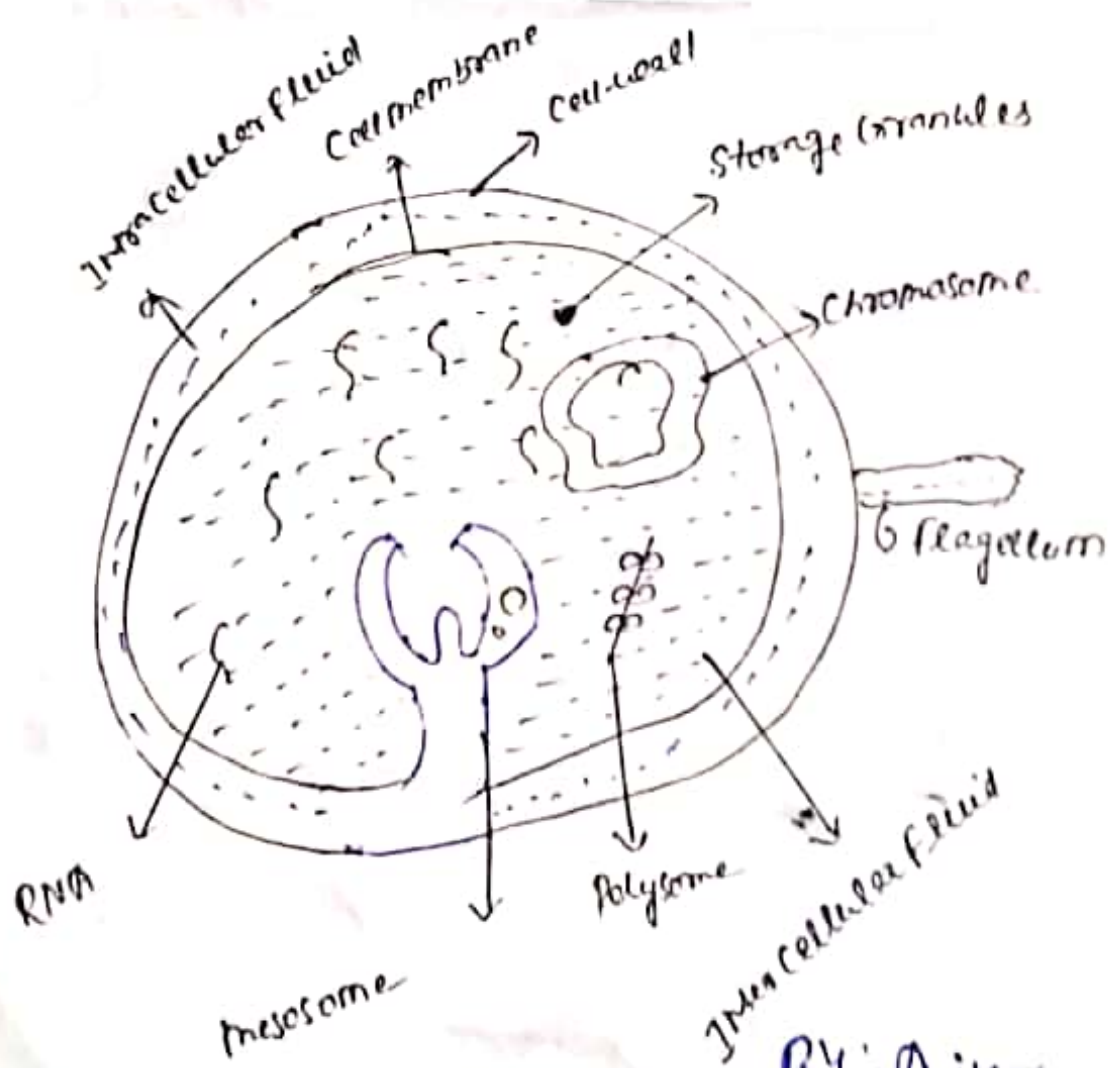 Intracellular fluid
Cell membrane
Cell-wall
Storage Granules
Chromasome
Flagellum
RNA
Polysome
Inter Cellular fluid
mesosome